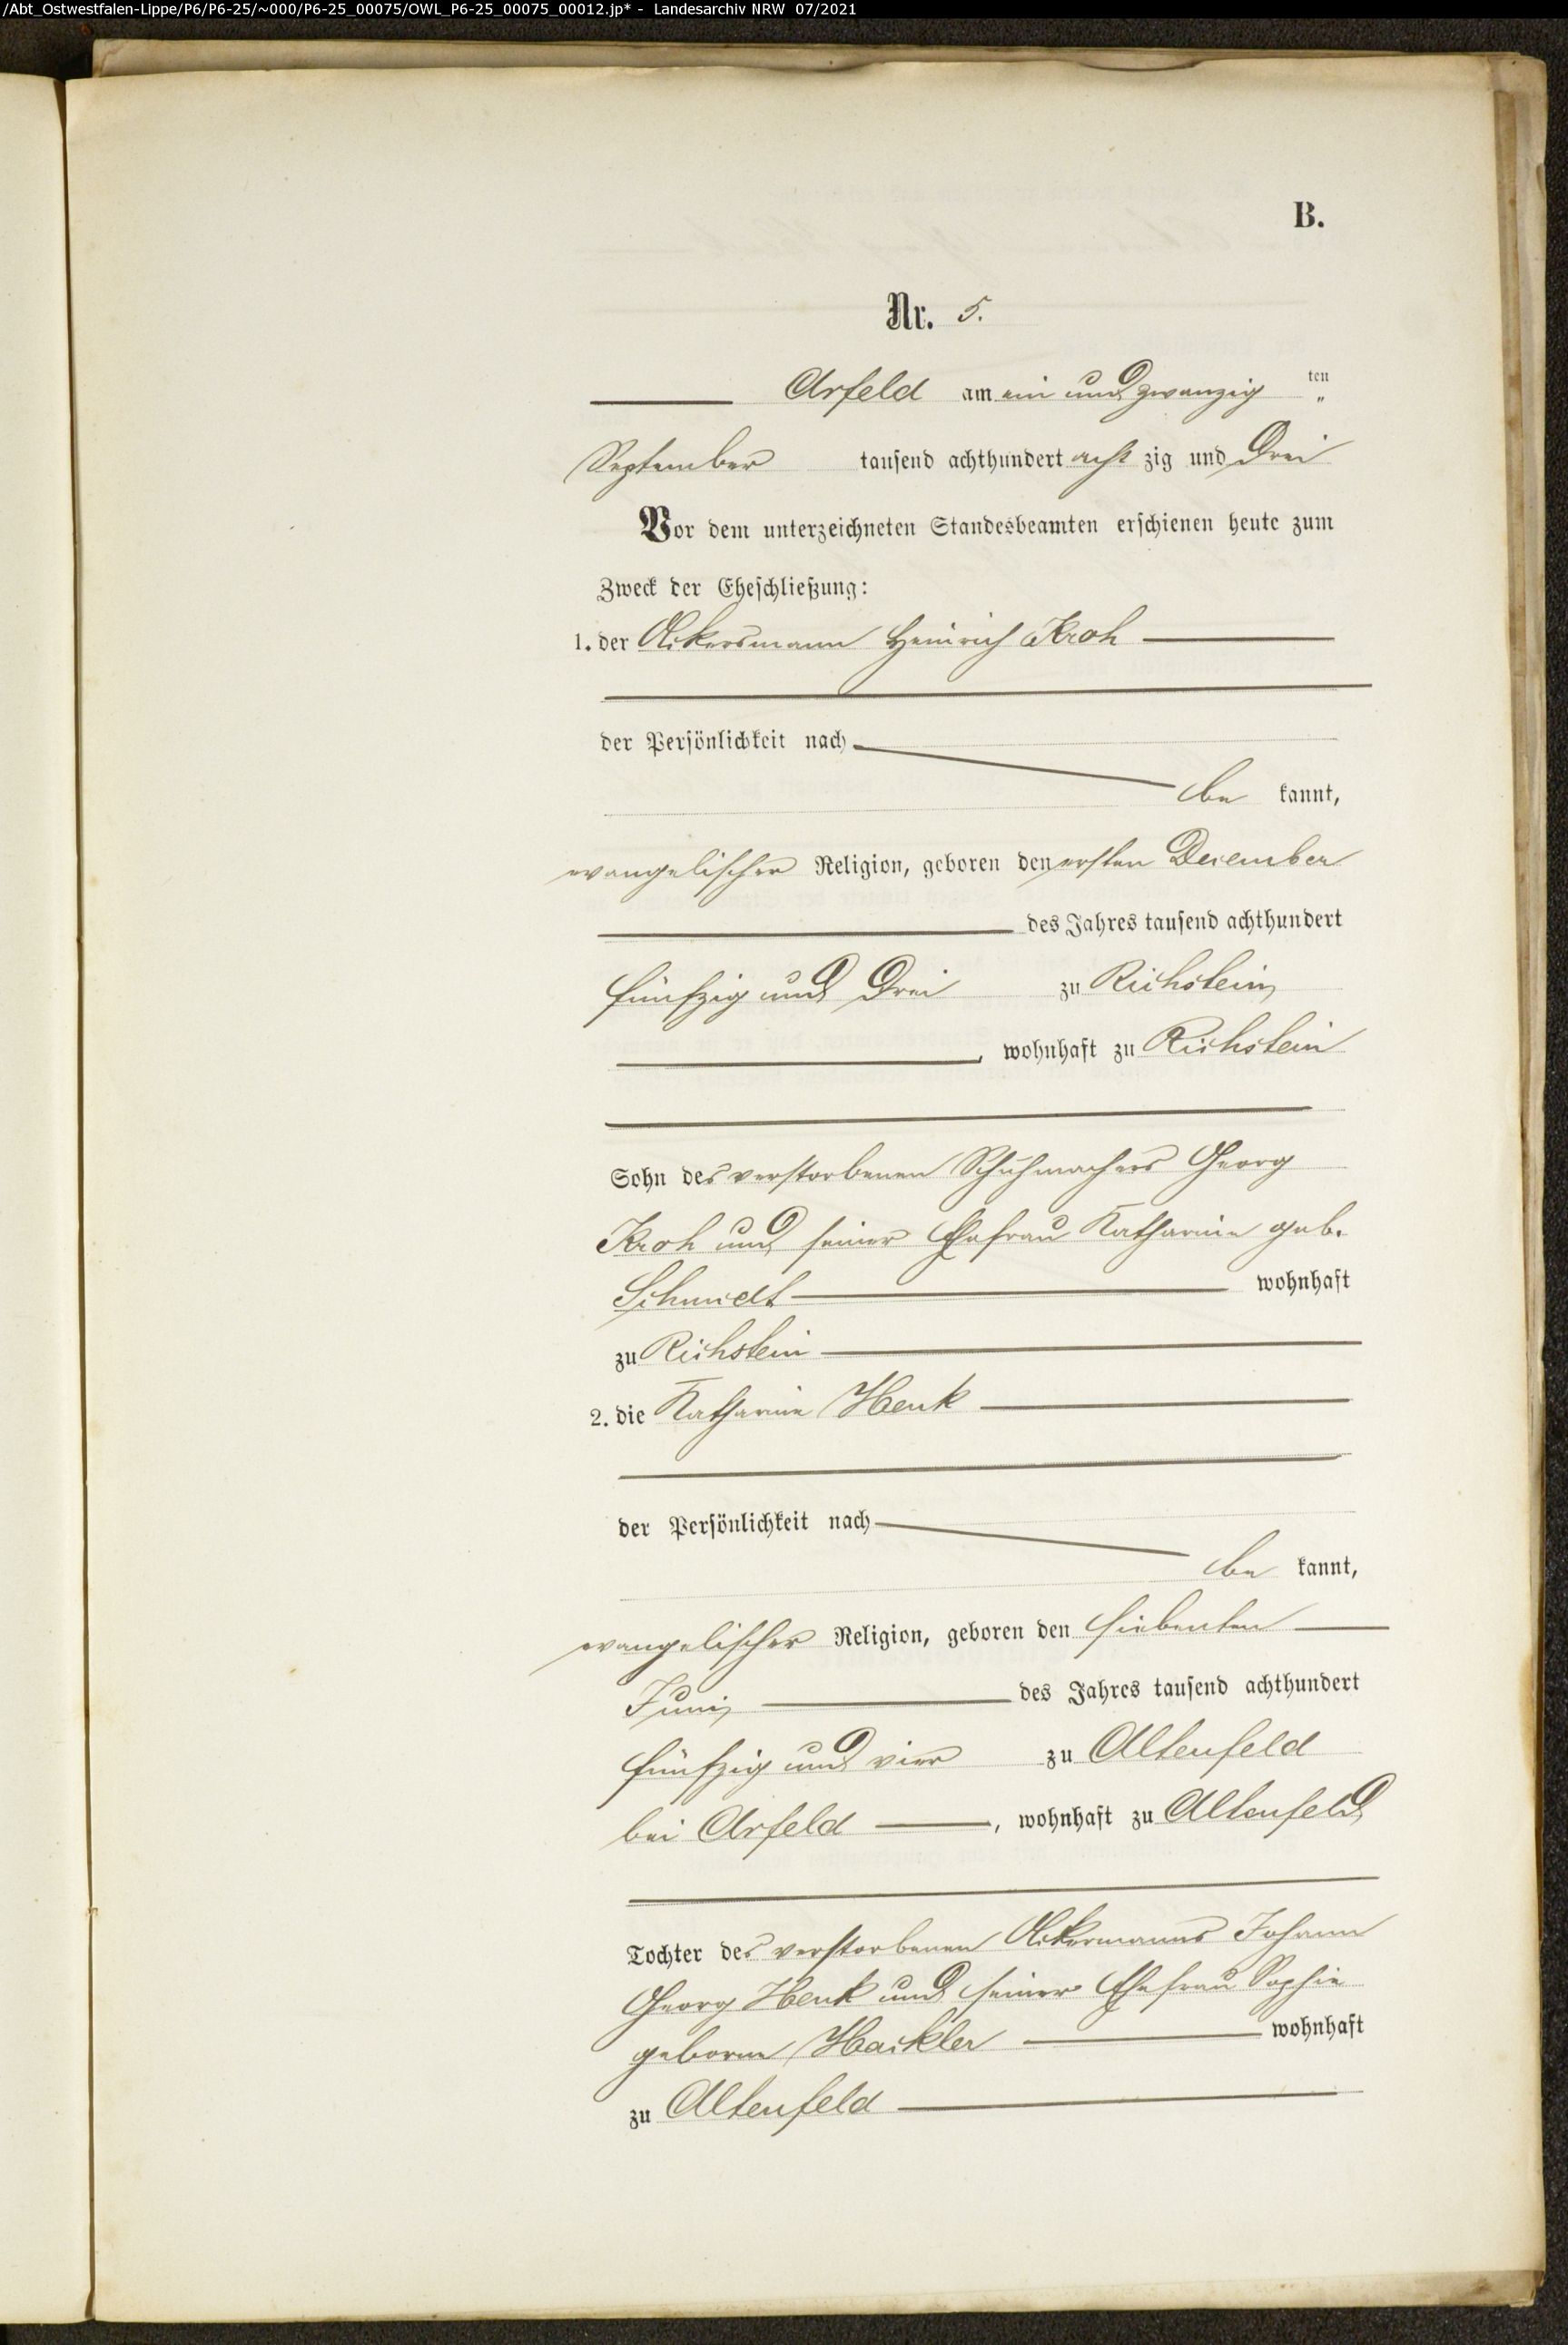 /Abt_Ostwestfalen-Lippe/P6/P6-25/~000/P6-25_00075/OWL_P6-25_00075_00012.jp* - Landesarchiv NRW 07/2021
B.
Nr. 5.
Arfeld am ein und zwanzig ten
September tausend achthundert acht zig und Drei
Vor dem unterzeichneten Standesbeamten erschienen heute zum
Zweck der Eheschließung:
1. der Ackersmann Heinrich Kroh
der Persönlichkeit nach
be kannt,
evangelischer Religion, geboren den ersten December
des Jahres tausend achthundert
fünfzig und Drei zu Richstein
, wohnhaft zu Richstein
Sohn des verstorbenen Schuhmachers Georg
Kroh und seiner Ehefrau Katharine geb.
Schmidt wohnhaft
zu Richstein
2. die Katharine Henk
der Persönlichkeit nach
be kannt,
evangelischer Religion, geboren den siebenten
Juni des Jahres tausend achthundert
fünfzig und vier zu Altenfeld
bei Arfeld , wohnhaft zu Altenfeld
Tochter des verstorbenen Ackermanns Johann
Georg Henk und seiner Ehefrau Sophie
geborne Hackler wohnhaft
zu Altenfeld